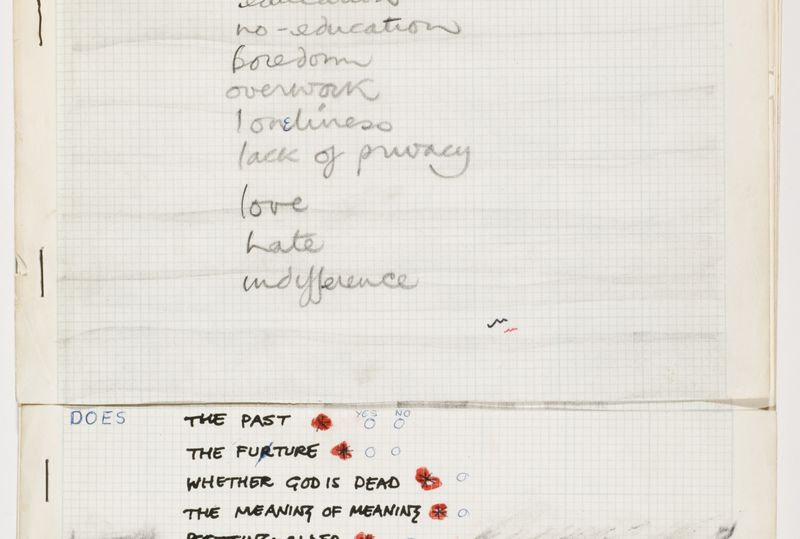 education
no-education
boredom
overwork
loneliness
lack of privacy
love
hate
indifference
DOES THE PAST YES NO
THE FURTURE
WHETHER GOD IS DEAD
THE MEANING OF MEANING